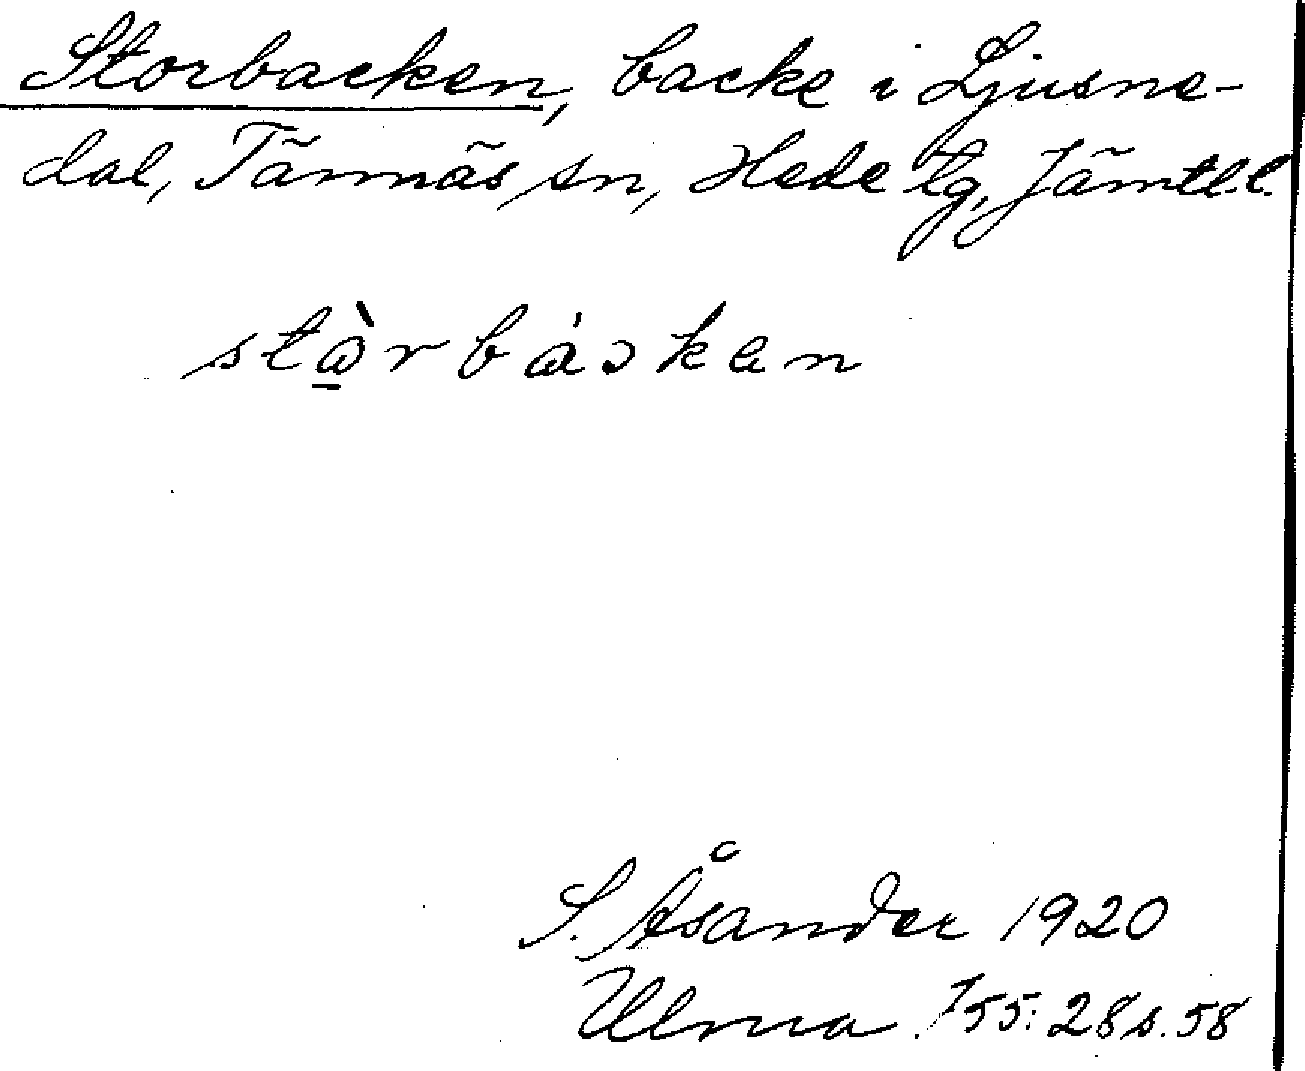 Storbacken, backe i Ljusne-
dal, Tännäs sn, Hede tg, Jämtl.l.
stɷ̱̀rbáɔken
S. Åsander 1920
Ulma 755:28 s. 58